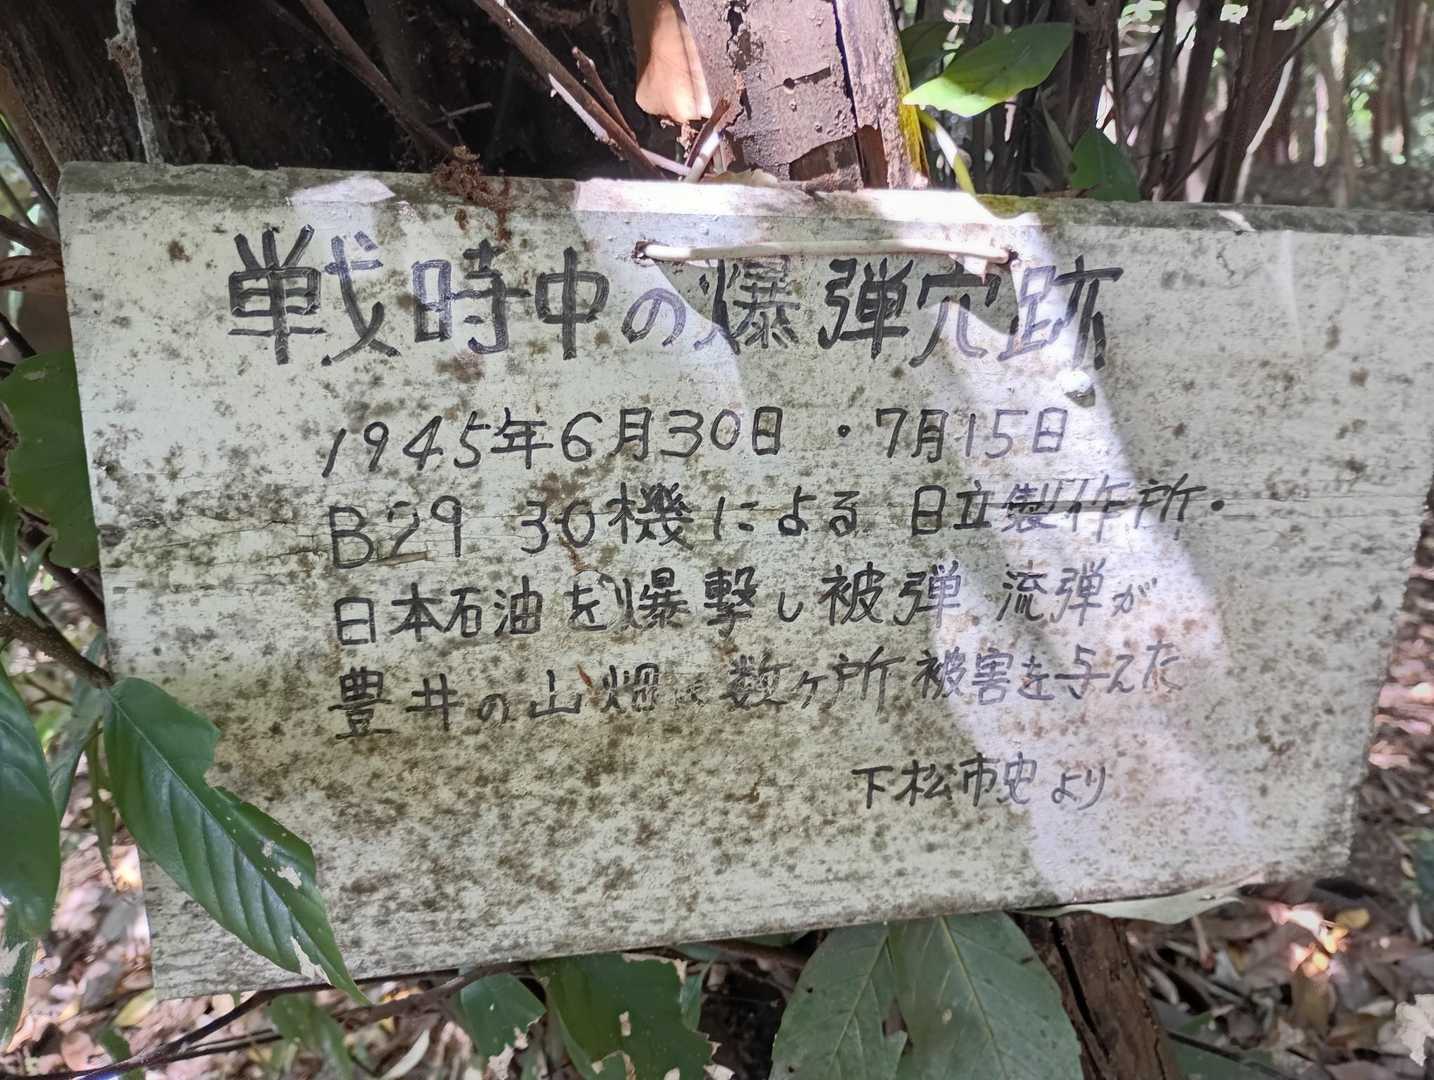 戦時中の爆弾穴跡
1945年6月30日・7月15日
B29 30機による 日立製作所・
日本石油を爆撃し被弾、流弾が
豊井の山畑に数ヶ所被害を与えた
下松市史より